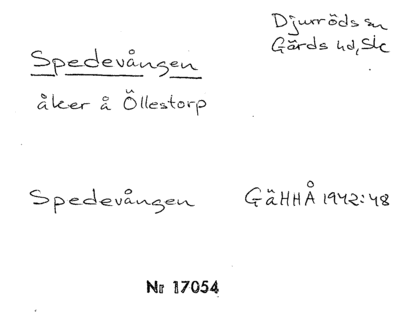 Djurröds sn
Gärds hd, Sk
Spedevången
åker å Öllestorp
Spedevången GäHHÅ 1942:48
Nr 17054